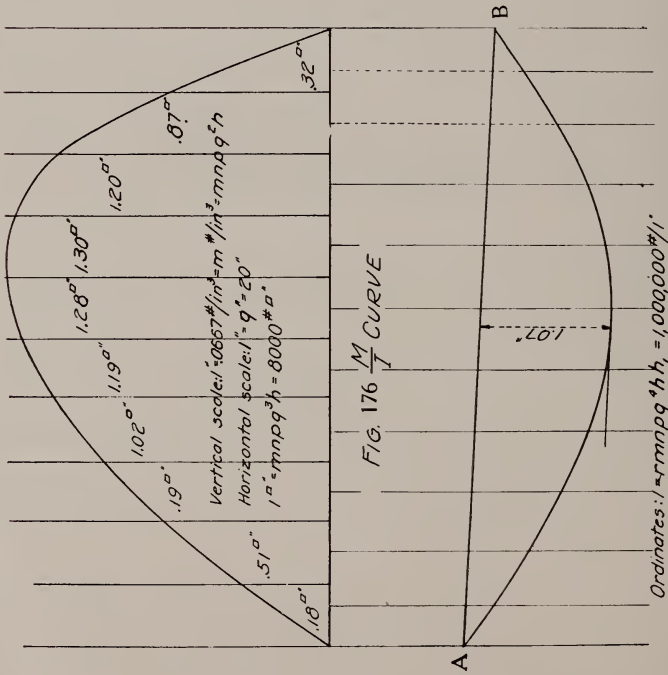 .18□"
.51□"
.19□"
1.02□"
1.19□"
1.28□"
1.30□"
1.20□"
.87□"
.32□"
Vertical scale: 1"=.0667#/in³=m#/in³=mnpq²h
Horizontal scale: 1"=q"=20"
1□"=mnpq³h=8000#□"
FIG. 176 M/I CURVE
A
B
1.07"
Ordinates: 1"=rmnpq⁴hh₁=1,000,000#/1"